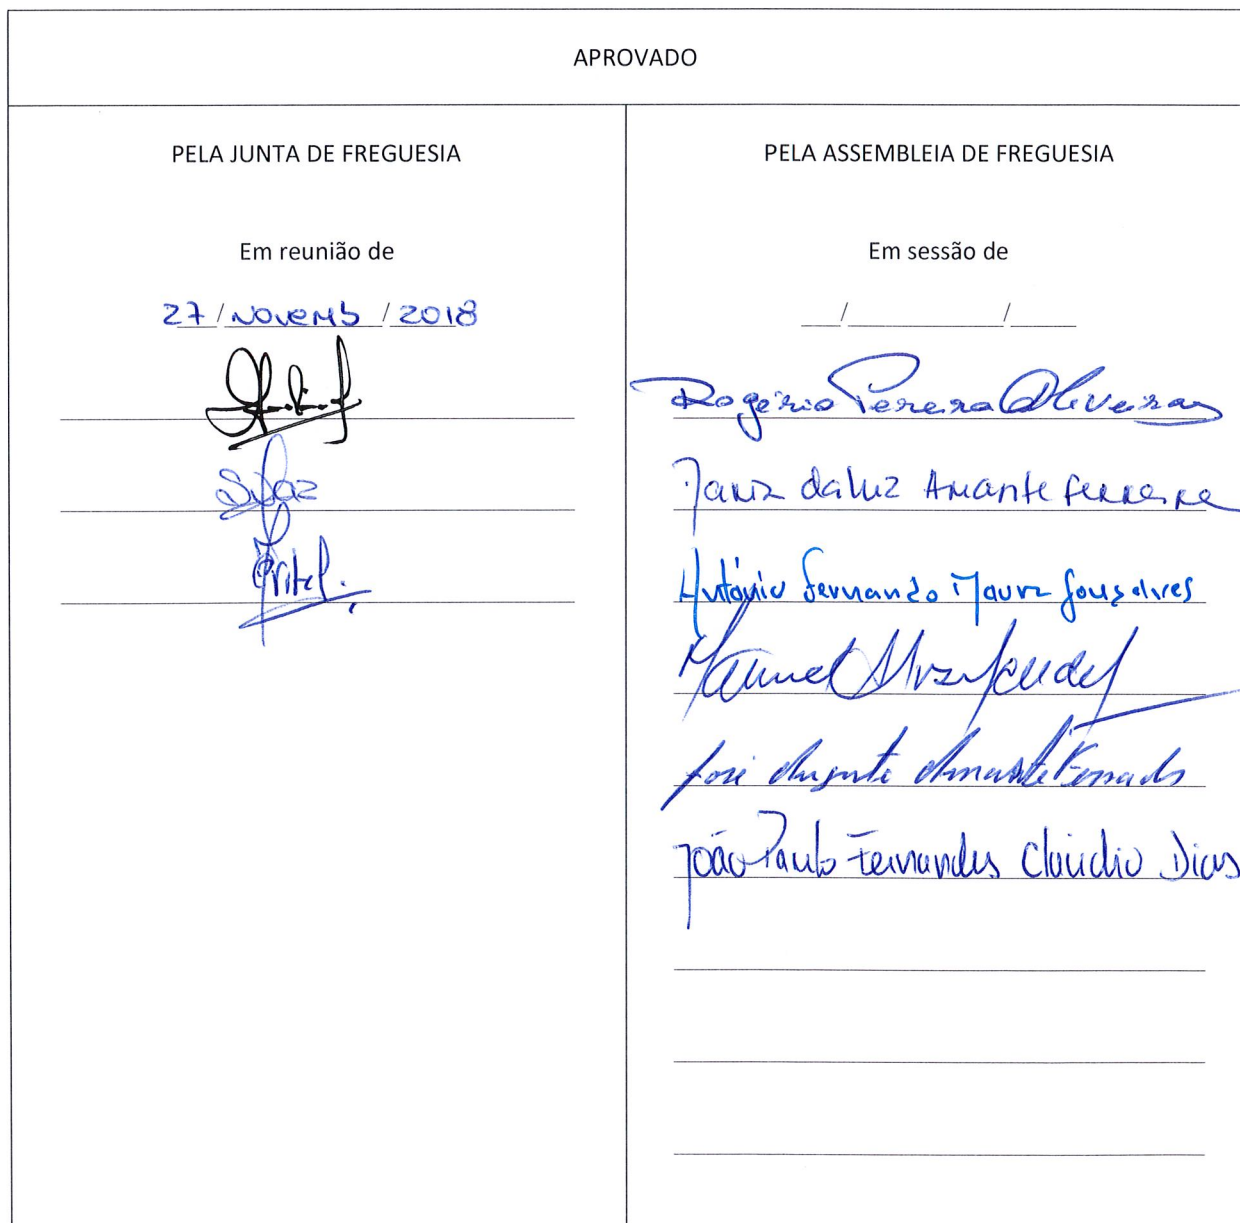 APROVADO
PELA JUNTA DE FREGUESIA
Em reunião de
27 / Novemb / 2018
PELA ASSEMBLEIA DE FREGUESIA
Em sessão de
___/__________/____
Rogério Pereira Oliveira
da Luz Amante Ferreira
António Fernando Moura Gonçalves
Manuel
José
João Paulo Fernandes Cláudio Dias